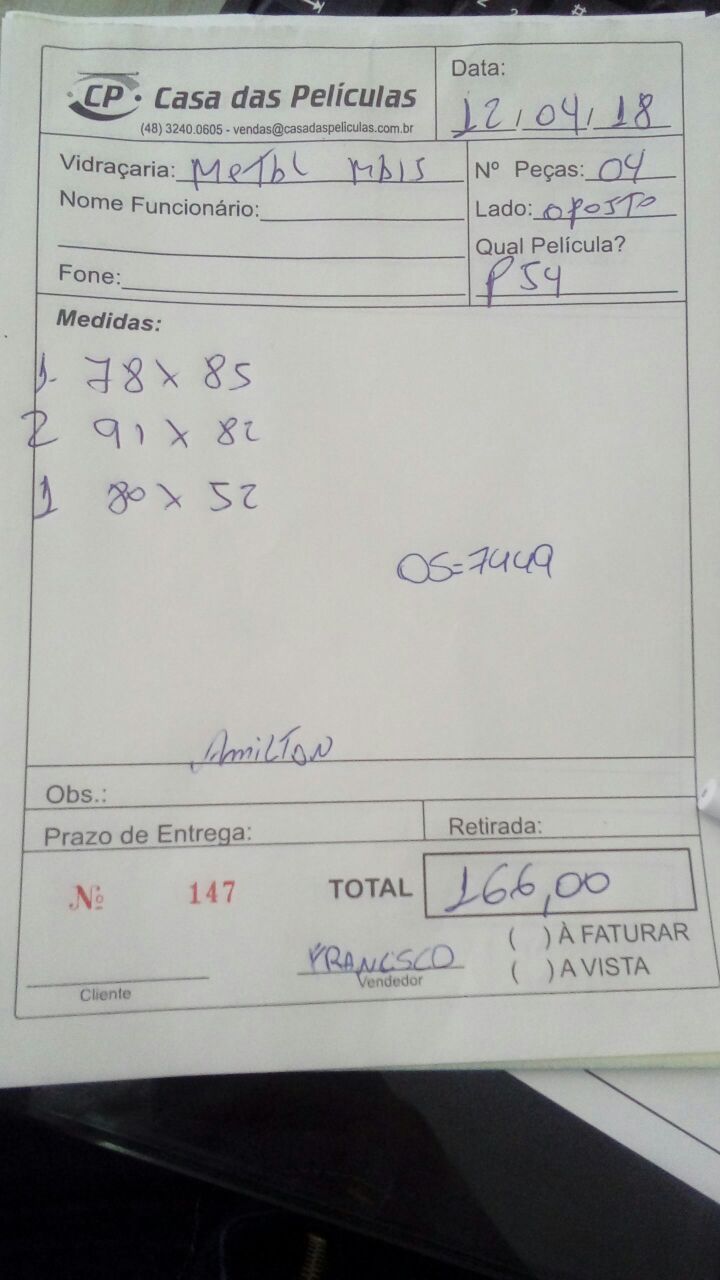 CP Casa das Películas
(48) 3240.0605 - vendas@casadaspeliculas.com.br
Data:
12/04/18
Vidraçaria: Metal Mais
Nome Funcionário:
Fone:
Nº Peças: 04
Lado: oposto
Qual Película?
P54
Medidas:
1- 78 x 85
2 91 x 82
1 80 x 52
OS=7449
Amilton
Obs.:
Prazo de Entrega:
Retirada:
Nº 147
TOTAL 166,00
( ) À FATURAR
( ) A VISTA
Francsco
Cliente
Vendedor